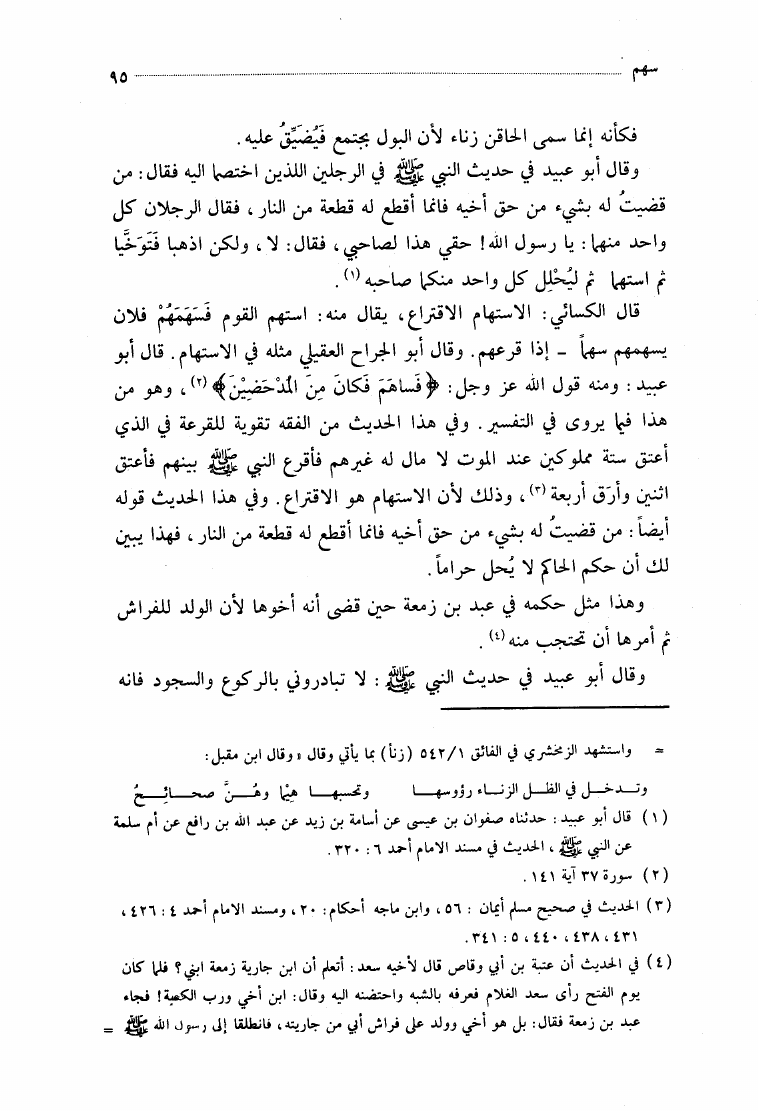 سهم ٩٥
فكأنه إنما سمى الحاقن زناء لأن البول يجتمع فَيُضَيِّقُ عليه.
وقال أبو عبيد في حديث النبي ﷺ في الرجلين اللذين اختصما اليه فقال: من
قضيتُ له بشيء من حق أخيه فانما أقطع له قطعة من النار، فقال الرجلان كل
واحد منهما: يا رسول الله! حقي هذا لصاحبي، فقال: لا، ولكن اذهبا فَتَوَخَّيا
ثم استهما ثم ليُحْلِل كل واحد منكما صاحبه (١).
قال الكسائي: الاستهام الاقتراع، يقال منه: استهم القوم فَسَهَمَهُمْ فلان
يسهمهم سهماً - إذا قرعهم. وقال أبو الجراح العقيلي مثله في الاستهام. قال أبو
عبيد: ومنه قول الله عز وجل: ﴿فَساهَمَ فَكَانَ مِنَ المُدْحَضِيْنَ﴾ (٢)، وهو من
هذا فيما يروى في التفسير. وفي هذا الحديث من الفقه تقوية للقرعة في الذي
أعتق ستة مملوكين عند الموت لا مال له غيرهم فأقرع النبي ﷺ بينهم فأعتق
اثنين وأرَق أربعة (٣)، وذلك لأن الاستهام هو الاقتراع. وفي هذا الحديث قوله
أيضاً: من قضيتُ له بشيء من حق أخيه فانما أقطع له قطعة من النار، فهذا يبين
لك أن حكم الحاكم لا يُحل حراماً.
وهذا مثل حكمه في عبد بن زمعة حين قضى أنه أخوها لأن الولد للفراش
ثم أمرها أن تحتجب منه (٤).
وقال أبو عبيد في حديث النبي ﷺ: لا تبادروني بالركوع والسجود فانه
= واستشهد الزمخشري في الفائق ١/ ٥٤٢ (زنأ) بما يأتي وقال «وقال ابن مقبل:
وتـدخـل في الظـل الزنـاء رؤوسهـا وتحسبهـا هِيْما وهُـنَّ صحـائـحُ
(١) قال أبو عبيد: حدثناه صفوان بن عيسى عن أسامة بن زيد عن عبد الله بن رافع عن أم سلمة
عن النبي ﷺ، الحديث في مسند الامام أحمد ٦: ٣٢٠.
(٢) سورة ٣٧ آية ١٤١.
(٣) الحديث في صحيح مسلم أيمان: ٥٦، وابن ماجه أحكام: ٢٠، ومسند الامام أحمد ٤: ٤٢٦،
٤٣١، ٤٣٨، ٤٤٠، ٥: ٣٤١.
(٤) في الحديث أن عتبة بن أبي وقاص قال لأخيه سعد: أتعلم أن ابن جارية زمعة ابني؟ فلما كان
يوم الفتح رأى سعد الغلام فعرفه بالشبه واحتضنه اليه وقال: ابن أخي ورب الكعبة! فجاء
عبد بن زمعة فقال: بل هو أخي وولد على فراش أبي من جاريته، فانطلقا إلى رسول الله ﷺ =